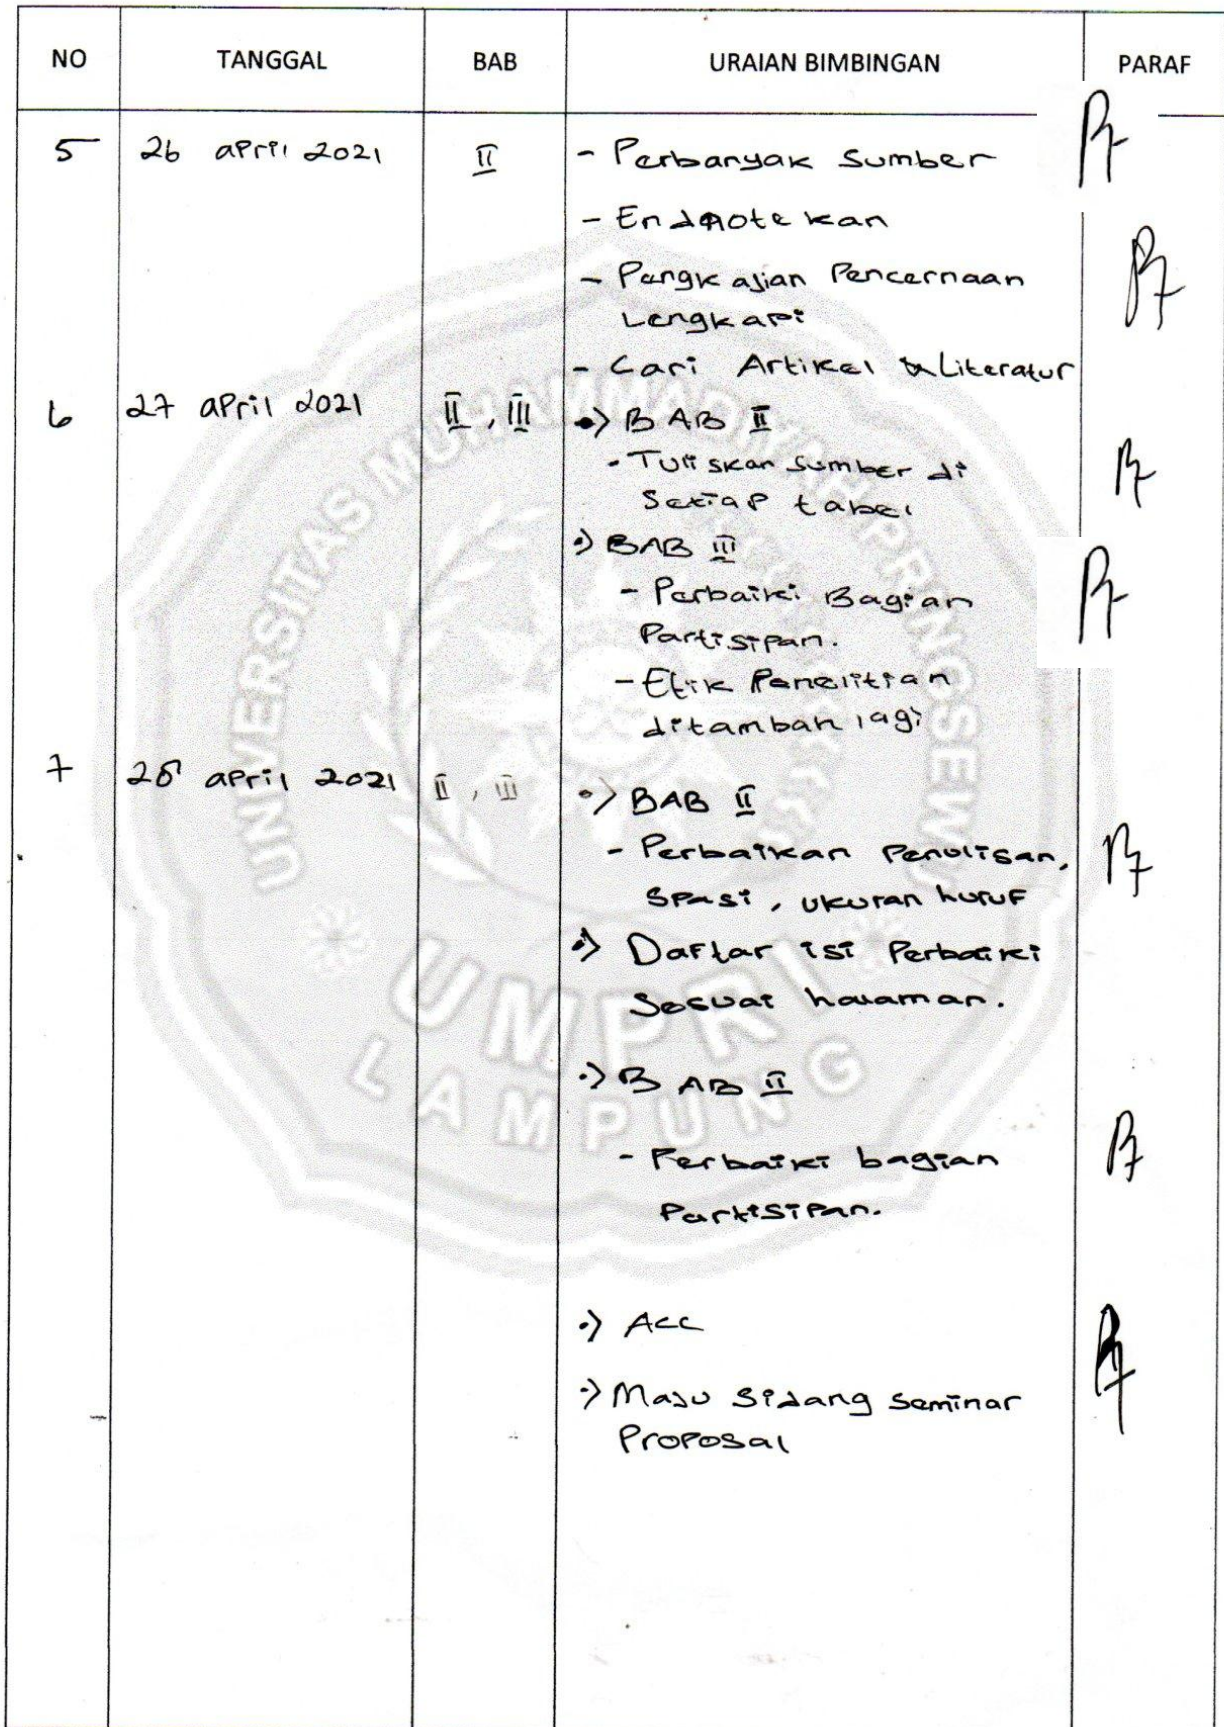 NO TANGGAL BAB URAIAN BIMBINGAN PARAF
5 26 april 2021 II - Perbanyak sumber
- Endnote kan
- Pengkajian Pencernaan
Lengkapi
- Cari Artikel & Literatur
6 27 april 2021 II, III •> BAB II
- Tuliskan sumber di
Setiap tabel
•> BAB III
- Perbaiki Bagian
Partisipan.
- Etik Penelitian
ditambah lagi
7 28 april 2021 II, III •> BAB II
- Perbaikan Penulisan,
spasi, ukuran huruf
•> Daftar isi Perbaiki
Sesuai halaman.
•> BAB II
- Perbaiki bagian
Partisipan.
•> Acc
•> Maju Sidang seminar
Proposal
UNIVERSITAS MUHAMMADIYAH PRINGSEWU
UMPRI
LAMPUNG